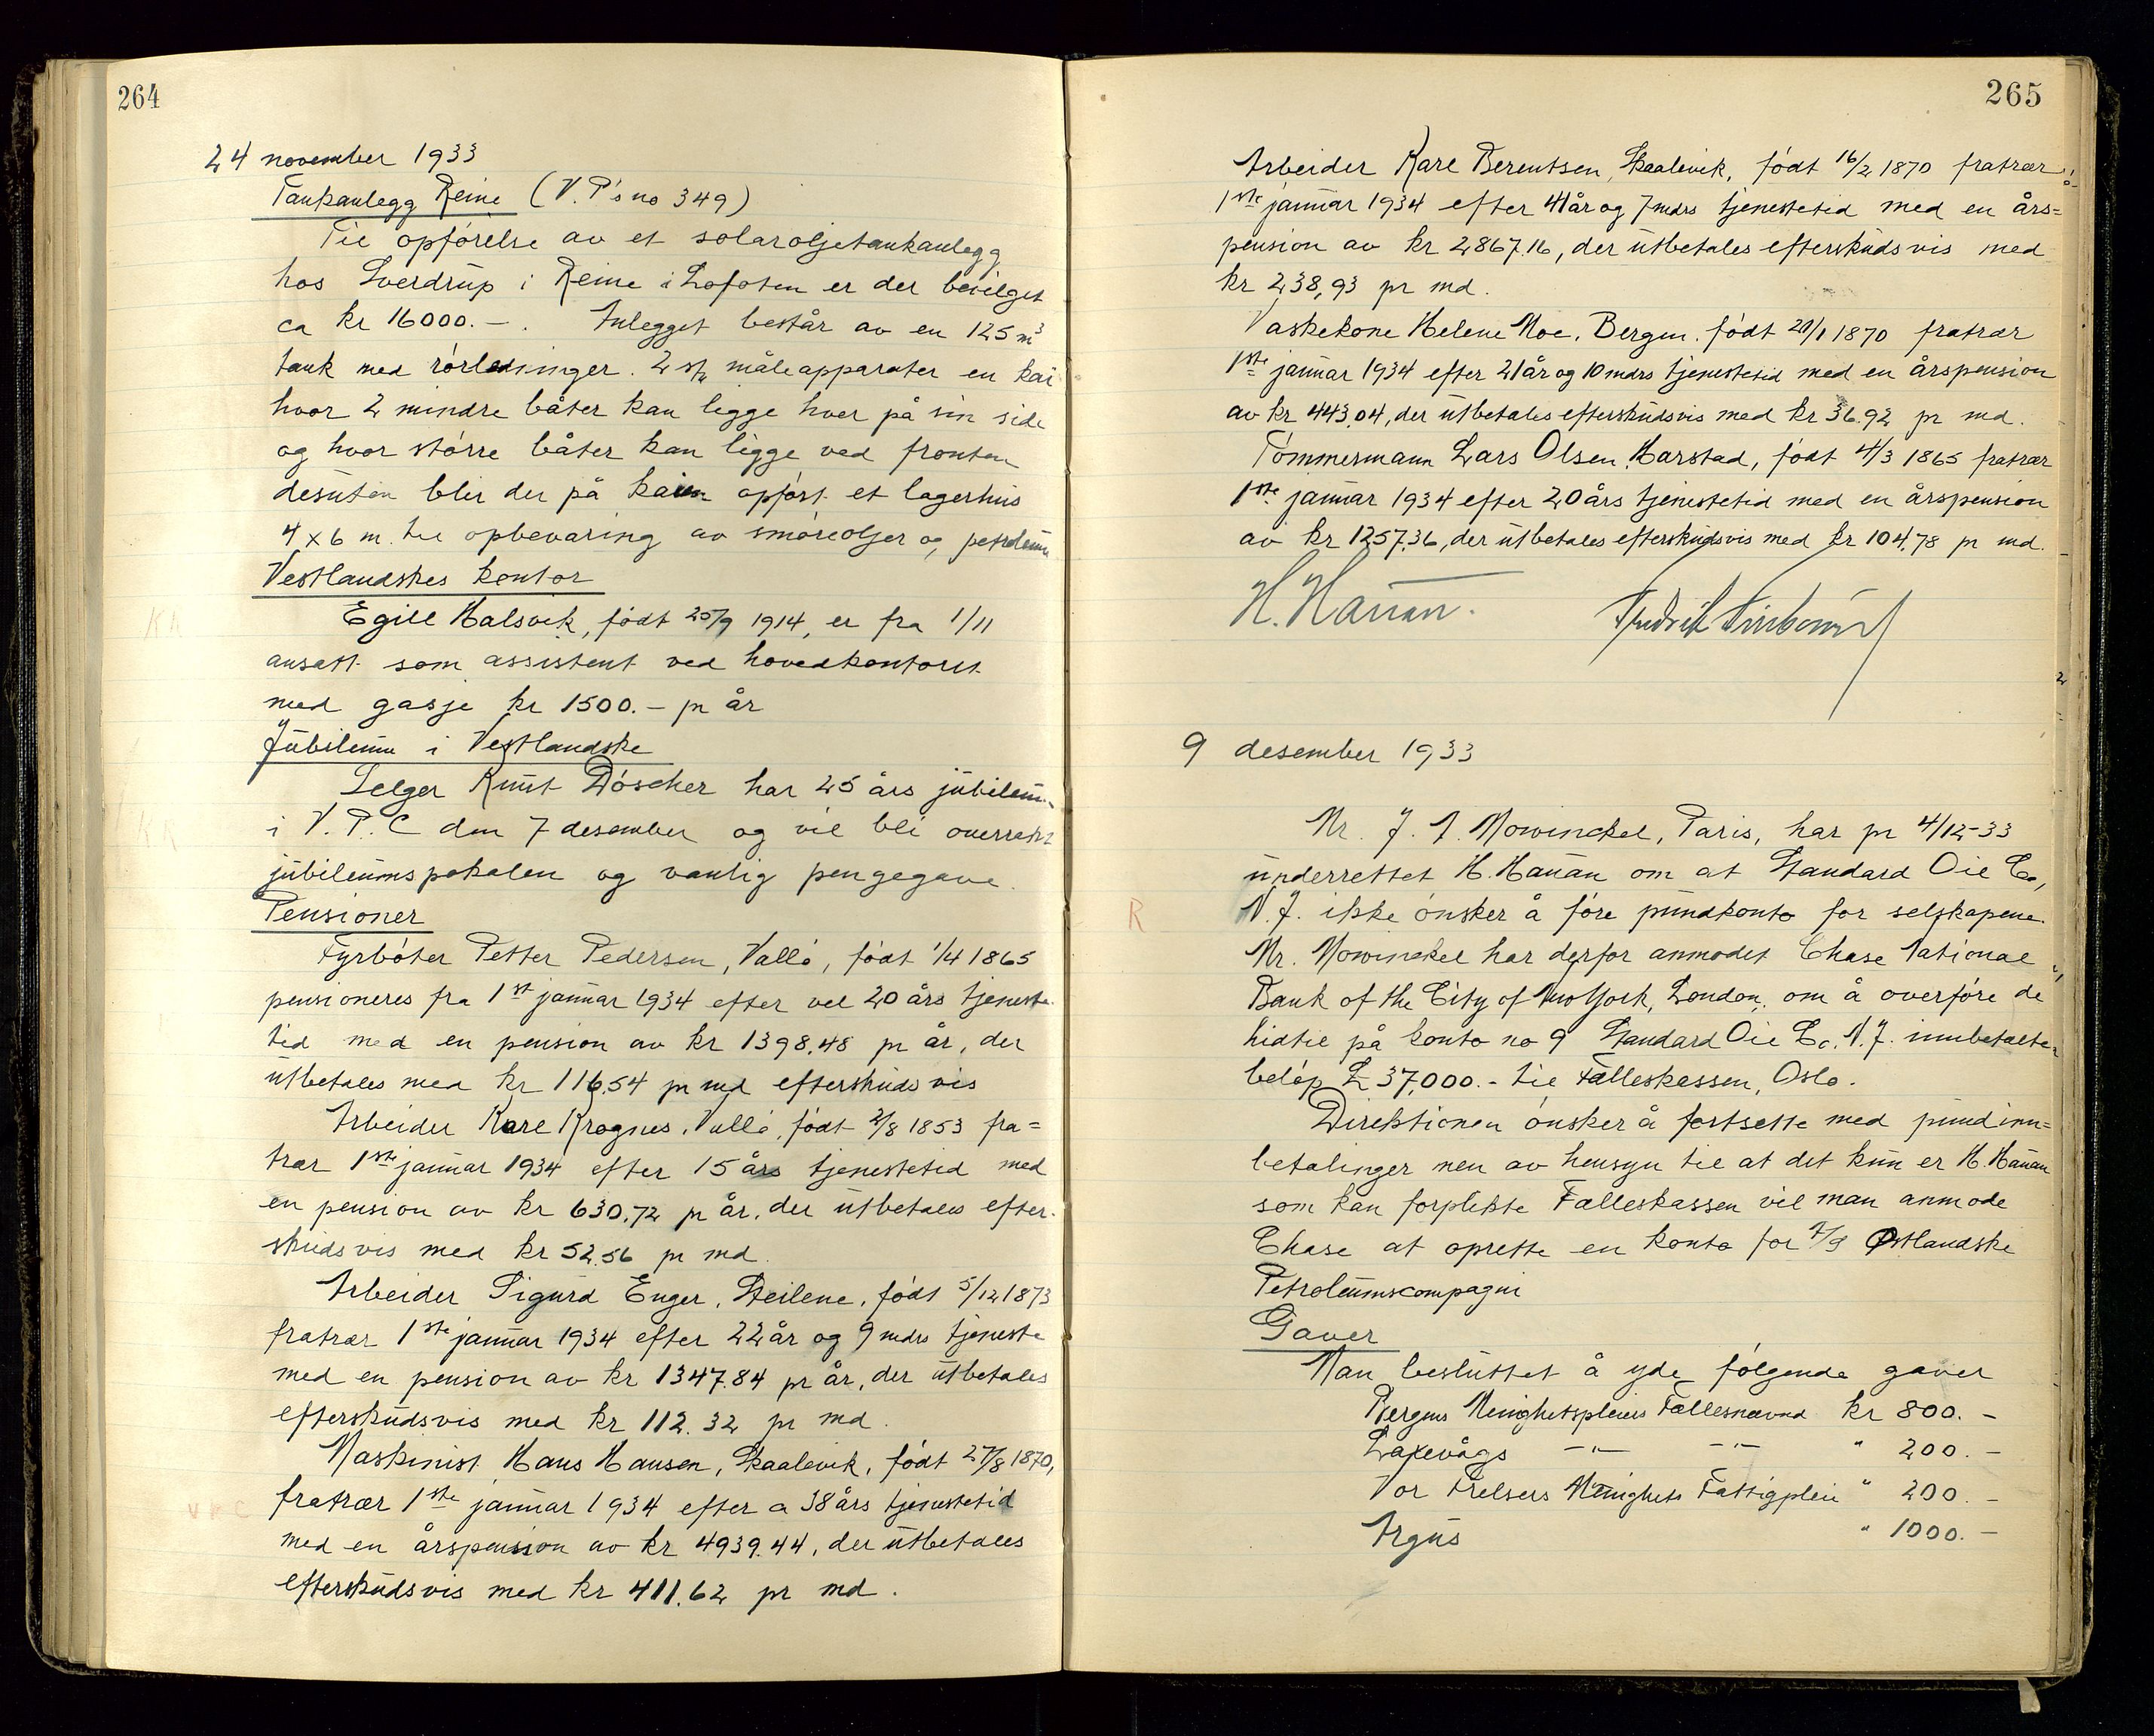 264
24 november 1933
Tankanlegg Reine (V.P's no 349)
Til opførelse av et solaroljetankanlegg
hos Sverdrup i Reine i Lofoten er der bevilget
ca kr 16000.-. Anlegget består av en 125 m³
tank med rørledninger. 2 stk måleapparater en kai
hvor 2 mindre båter kan legge hver på sin side
og hvor større båter kan ligge ved fronten
desuten blir der på kaien opført et lagerhus
4 x 6 m. til opbevaring av smøreoljer og petroleum
Vestlandskes kontor
Egill Halsvik, født 25/9 1914, er fra 1/11
ansatt som assistent ved hovedkontoret
med gasje kr 1500.- pr år
Jubileum i Vestlandske
Selger Knut Döscher har 25 års jubileum
i V.P.C den 7 desember og vil bli overrakt
jubileumspokalen og vanlig pengegave.
Pensioner
Fyrbøter Petter Pedersen, Vallø, født 1/4 1865
pensioneres fra 1st januar 1934 efter vel 20 års tjeneste-
tid med en pension av kr 1398,48 pr år, der
utbetales med kr 116,54 pr md efterskudsvis
Arbeider Karl Krognes, Vallø, født 2/8 1853 fra=
trær 1ste januar 1934 efter 15 års tjenestetid med
en pension av kr 630,72 pr år, der utbetales efter-
skudsvis med kr 52.56 pr md.
Arbeider Sigurd Enger, Steilene, født 5/12 1873
fratrær 1ste januar 1934 efter 22 år og 9 mdrs tjeneste
med en pension av kr 1347.84 pr år, der utbetales
efterskudsvis med kr 112.32 pr md.
Maskinist Hans Hansen, Skaalevik, født 27/8 1870,
VPC
fratrær 1ste januar 1934 efter a 38 års tjenestetid
med en årspension av kr 4939.44, der utbetales
efterskudsvis med kr 411.62 pr md.
265
Arbeider Karl Berentsen, Skaalevik, født 16/2 1870 fratrær
1ste januar 1934 efter 41 år og 7 mdrs tjenestetid med en års=
pension av kr 2867.16, der utbetales efterskudsvis med
kr 238,93 pr md.
Vaskekone Helene Moe, Bergen, født 21/1 1870 fratrær
1ste januar 1934 efter 21 år og 10 mdrs tjenestetid med en årspension
av kr 443.04, der utbetales efterskudsvis med kr 36.92 pr md.
Tømmermann Lars Olsen, Harstad, født 4/3 1865 fratrær
1ste januar 1934 efter 20 års tjenestetid med en årspension
av kr 1257.36, der utbetales efterskudsvis med kr 104,78 pr md.
H. Hauan.
9 desember 1933
Mr. J. A. Mowinckel, Paris, har pr 4/12-33
underrettet H. Hauan om at Standard Oil Co,
R
N.J. ikke ønsker å føre pundkonto for selskapene.
Mr. Mowinckel har derfor anmodet Chase National
Bank of the City of New York, London, om å overføre de
hidtil på konto no 9 Standard Oil Co. N.J. innbetalte
beløp £ 37,000.- til Fælleskassen, Oslo.
Direktionen ønsker å fortsette med pundinn=
betalinger men av hensyn til at det kun er H. Hauan
som kan forplikte Fælleskassen vil man anmode
Chase at oprette en konto for A/S Østlandske
Petroleumscompagni
Gaver
Man besluttet å yde følgende gaver
Bergens Menighetspleies Fællesnævnd kr 800.-
Laxevågs -"- -"- " 200.-
Vor Frelsers Menighets Fattigpleie " 200.-
Argus " 1000.-